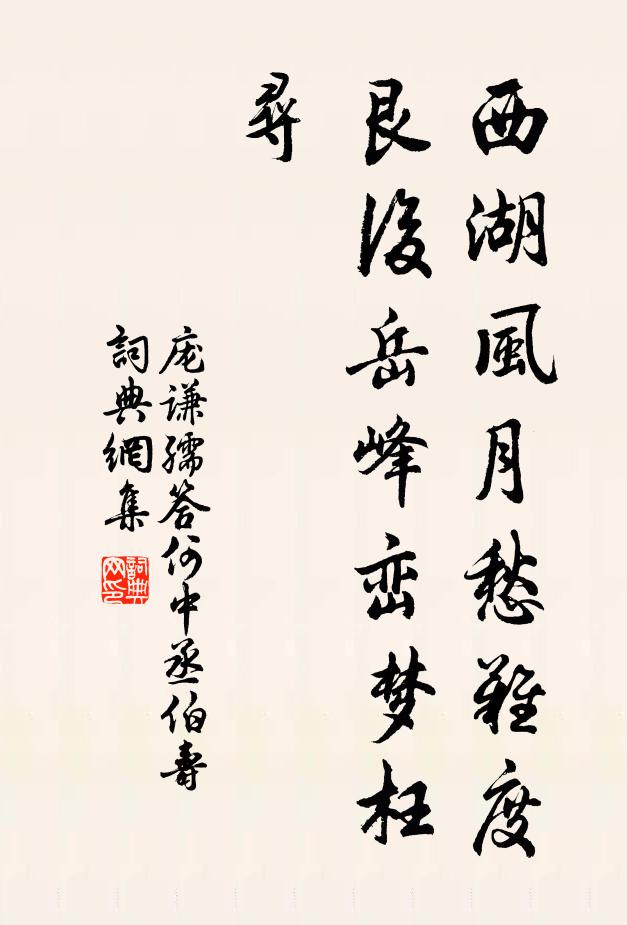 西湖風月愁難度
艮後岳峰峦梦枉
尋
庞谦孺答何中丞伯壽
詞典網集
詞典网印